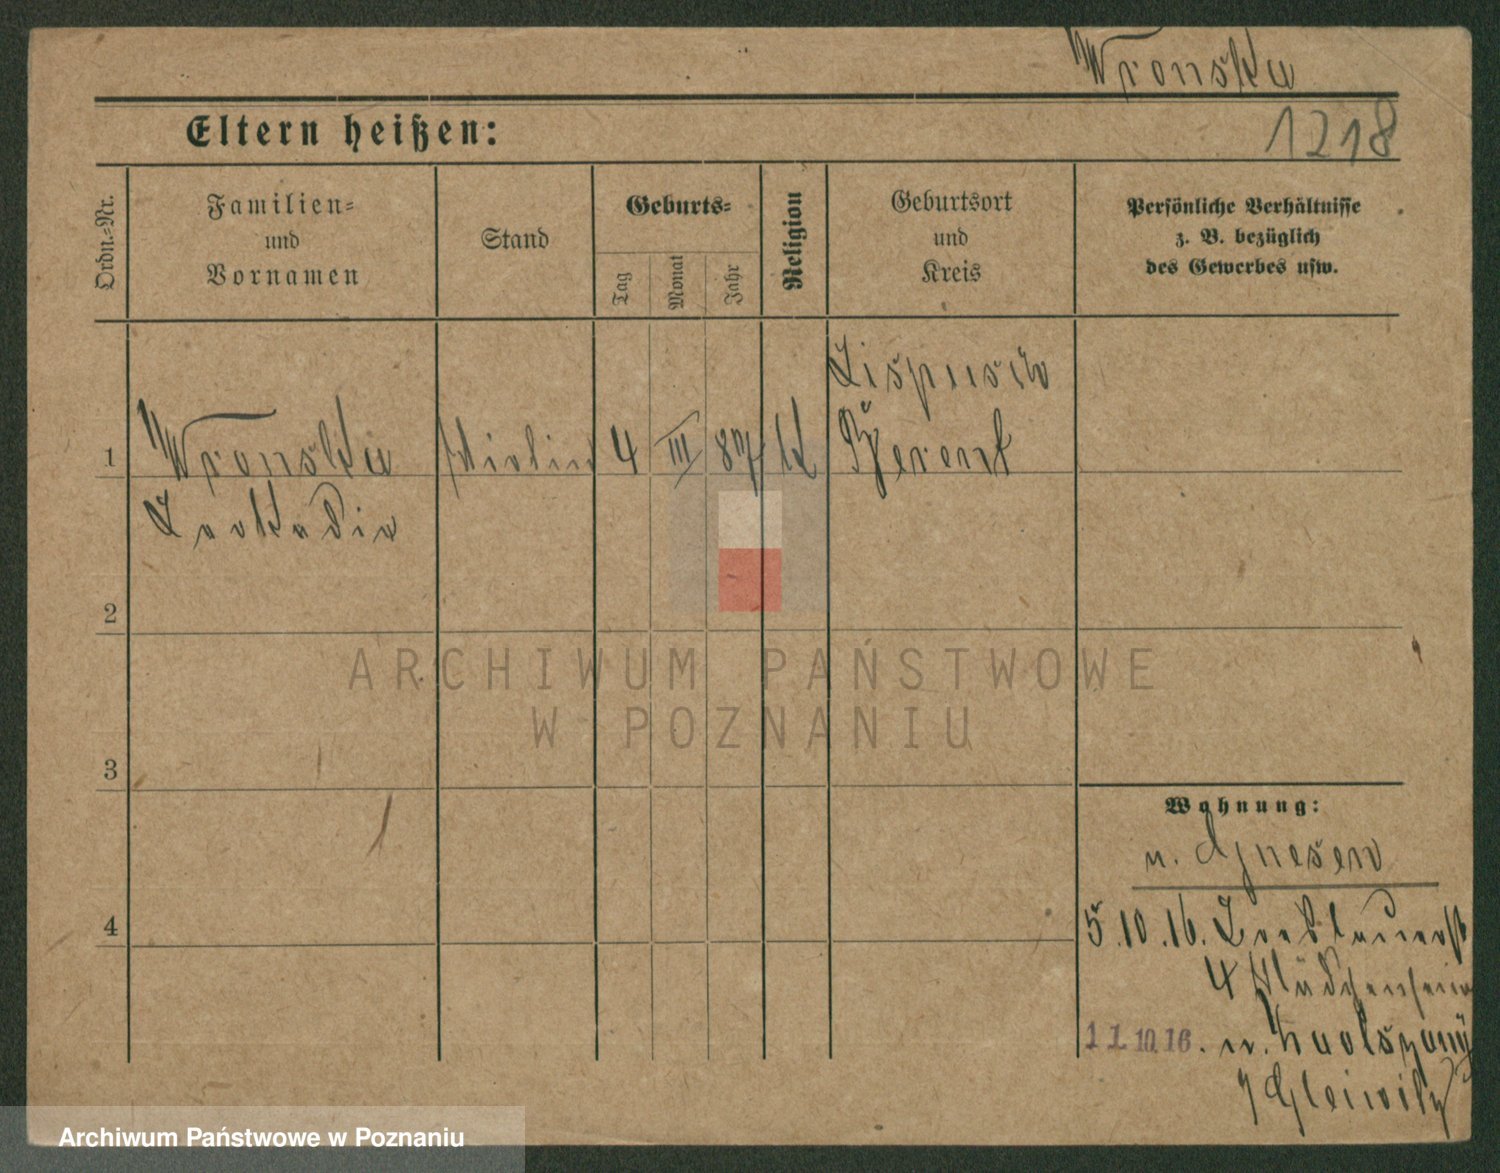 Wronska
1218
Eltern heißen:
Ordn.-Nr.
Familien-
und
Vornamen
Stand
Geburts-
Tag
Monat
Jahr
Religion
Geburtsort
und
Kreis
Persönliche Verhältnisse
z. B. bezüglich
des Gewerbes usw.
Lispusch
1 Wronska 4 III 87 k Berent
Leokadia
2
3
4
Wohnung:
n. Gnesen
5.10.16.
4 Mädchenheim
11.10.16. n.
Gleiwitz
ARCHIWUM PAŃSTWOWE
W POZNANIU
Archiwum Państwowe w Poznaniu